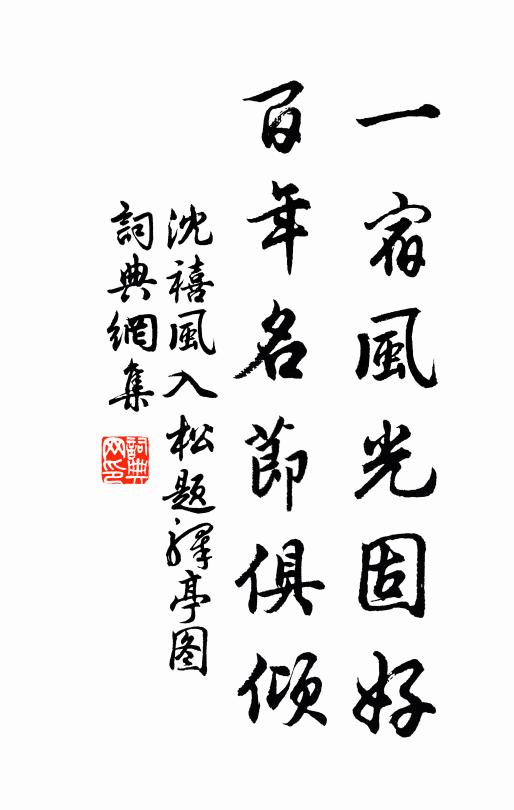 一宿風光固好
百年名節俱傾
沈禧風入松題驛亭图
詞典網集
詞典網印